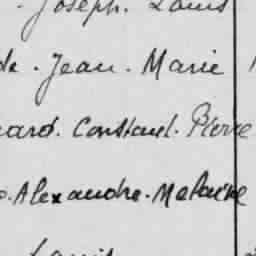 Joseph. Louis
de. Jean. Marie
ard. Constant. Pierre
Alexandre. Melaine
Louis